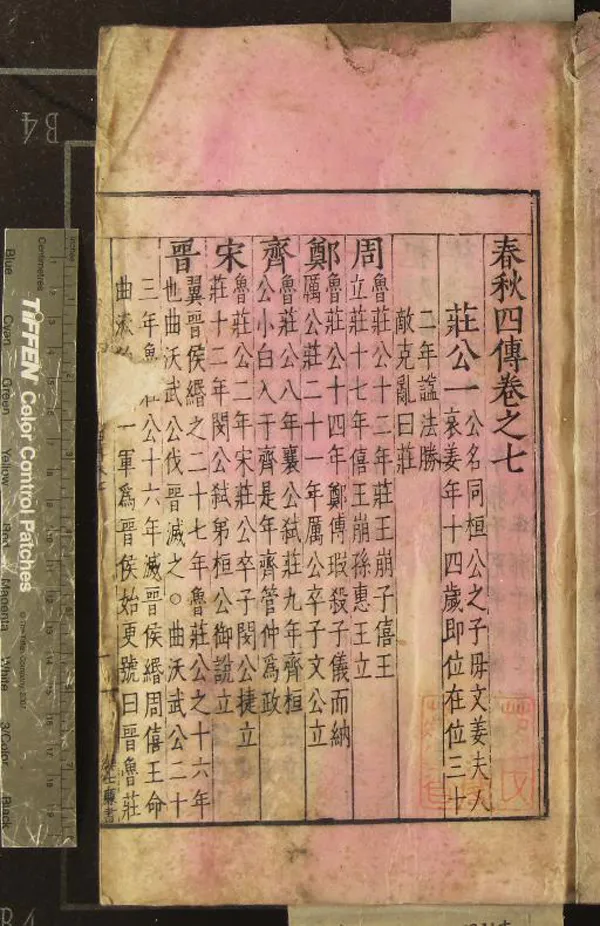 春秋四傳卷之七
莊公一
公名同桓公之子母文姜夫人
哀姜年十四歲即位在位三十
二年諡法勝
敵克亂曰莊
周
魯莊公十二年莊王崩子僖王
立莊十七年僖王崩孫惠王立
鄭
魯莊公十四年鄭傅瑕殺子儀而納
厲公莊二十一年厲公卒子文公立
齊
魯莊公八年襄公弑莊九年齊桓
公小白入于齊是年齊管仲為政
宋
魯莊公二年宋莊公卒子閔公捷立
莊十二年閔公弑弟桓公御說立
晉
翼晉侯緡之二十七年魯莊公之十六年
也曲沃武公伐晉滅之○曲沃武公二十
三年魯 公十六年滅晉侯緡周僖王命
曲沃 一軍為晉侯始更號曰晉魯莊
B4
TIFFEN Color Control Patches
Centimetres
Inches
Blue
Cyan
Green
Yellow
Red
Magenta
White
3/Color
Black
B4